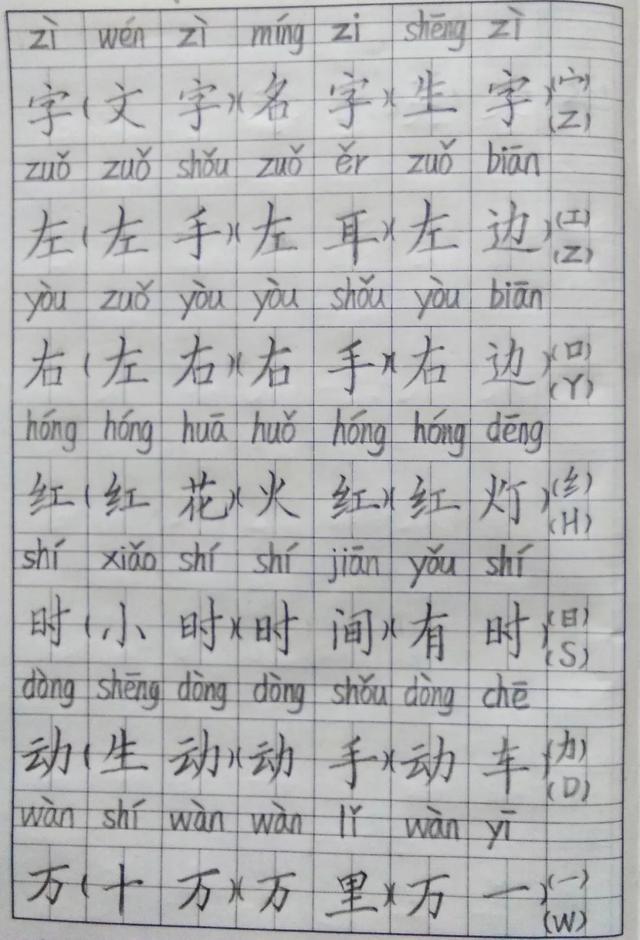 zì wén zì míng zi shēng zì
字(文字)(名字)(生字)(宀)(Z)
zuǒ zuǒ shǒu zuǒ ěr zuǒ biān
左(左手)(左耳)(左边)(工)(Z)
yòu zuǒ yòu yòu shǒu yòu biān
右(左右)(右手)(右边)(口)(Y)
hóng hóng huā huǒ hóng hóng dēng
红(红花)(火红)(红灯)(纟)(H)
shí xiǎo shí shí jiān yǒu shí
时(小时)(时间)(有时)(日)(S)
dòng shēng dòng dòng shǒu dòng chē
动(生动)(动手)(动车)(力)(D)
wàn shí wàn wàn lǐ wàn yī
万(十万)(万里)(万一)(一)(W)